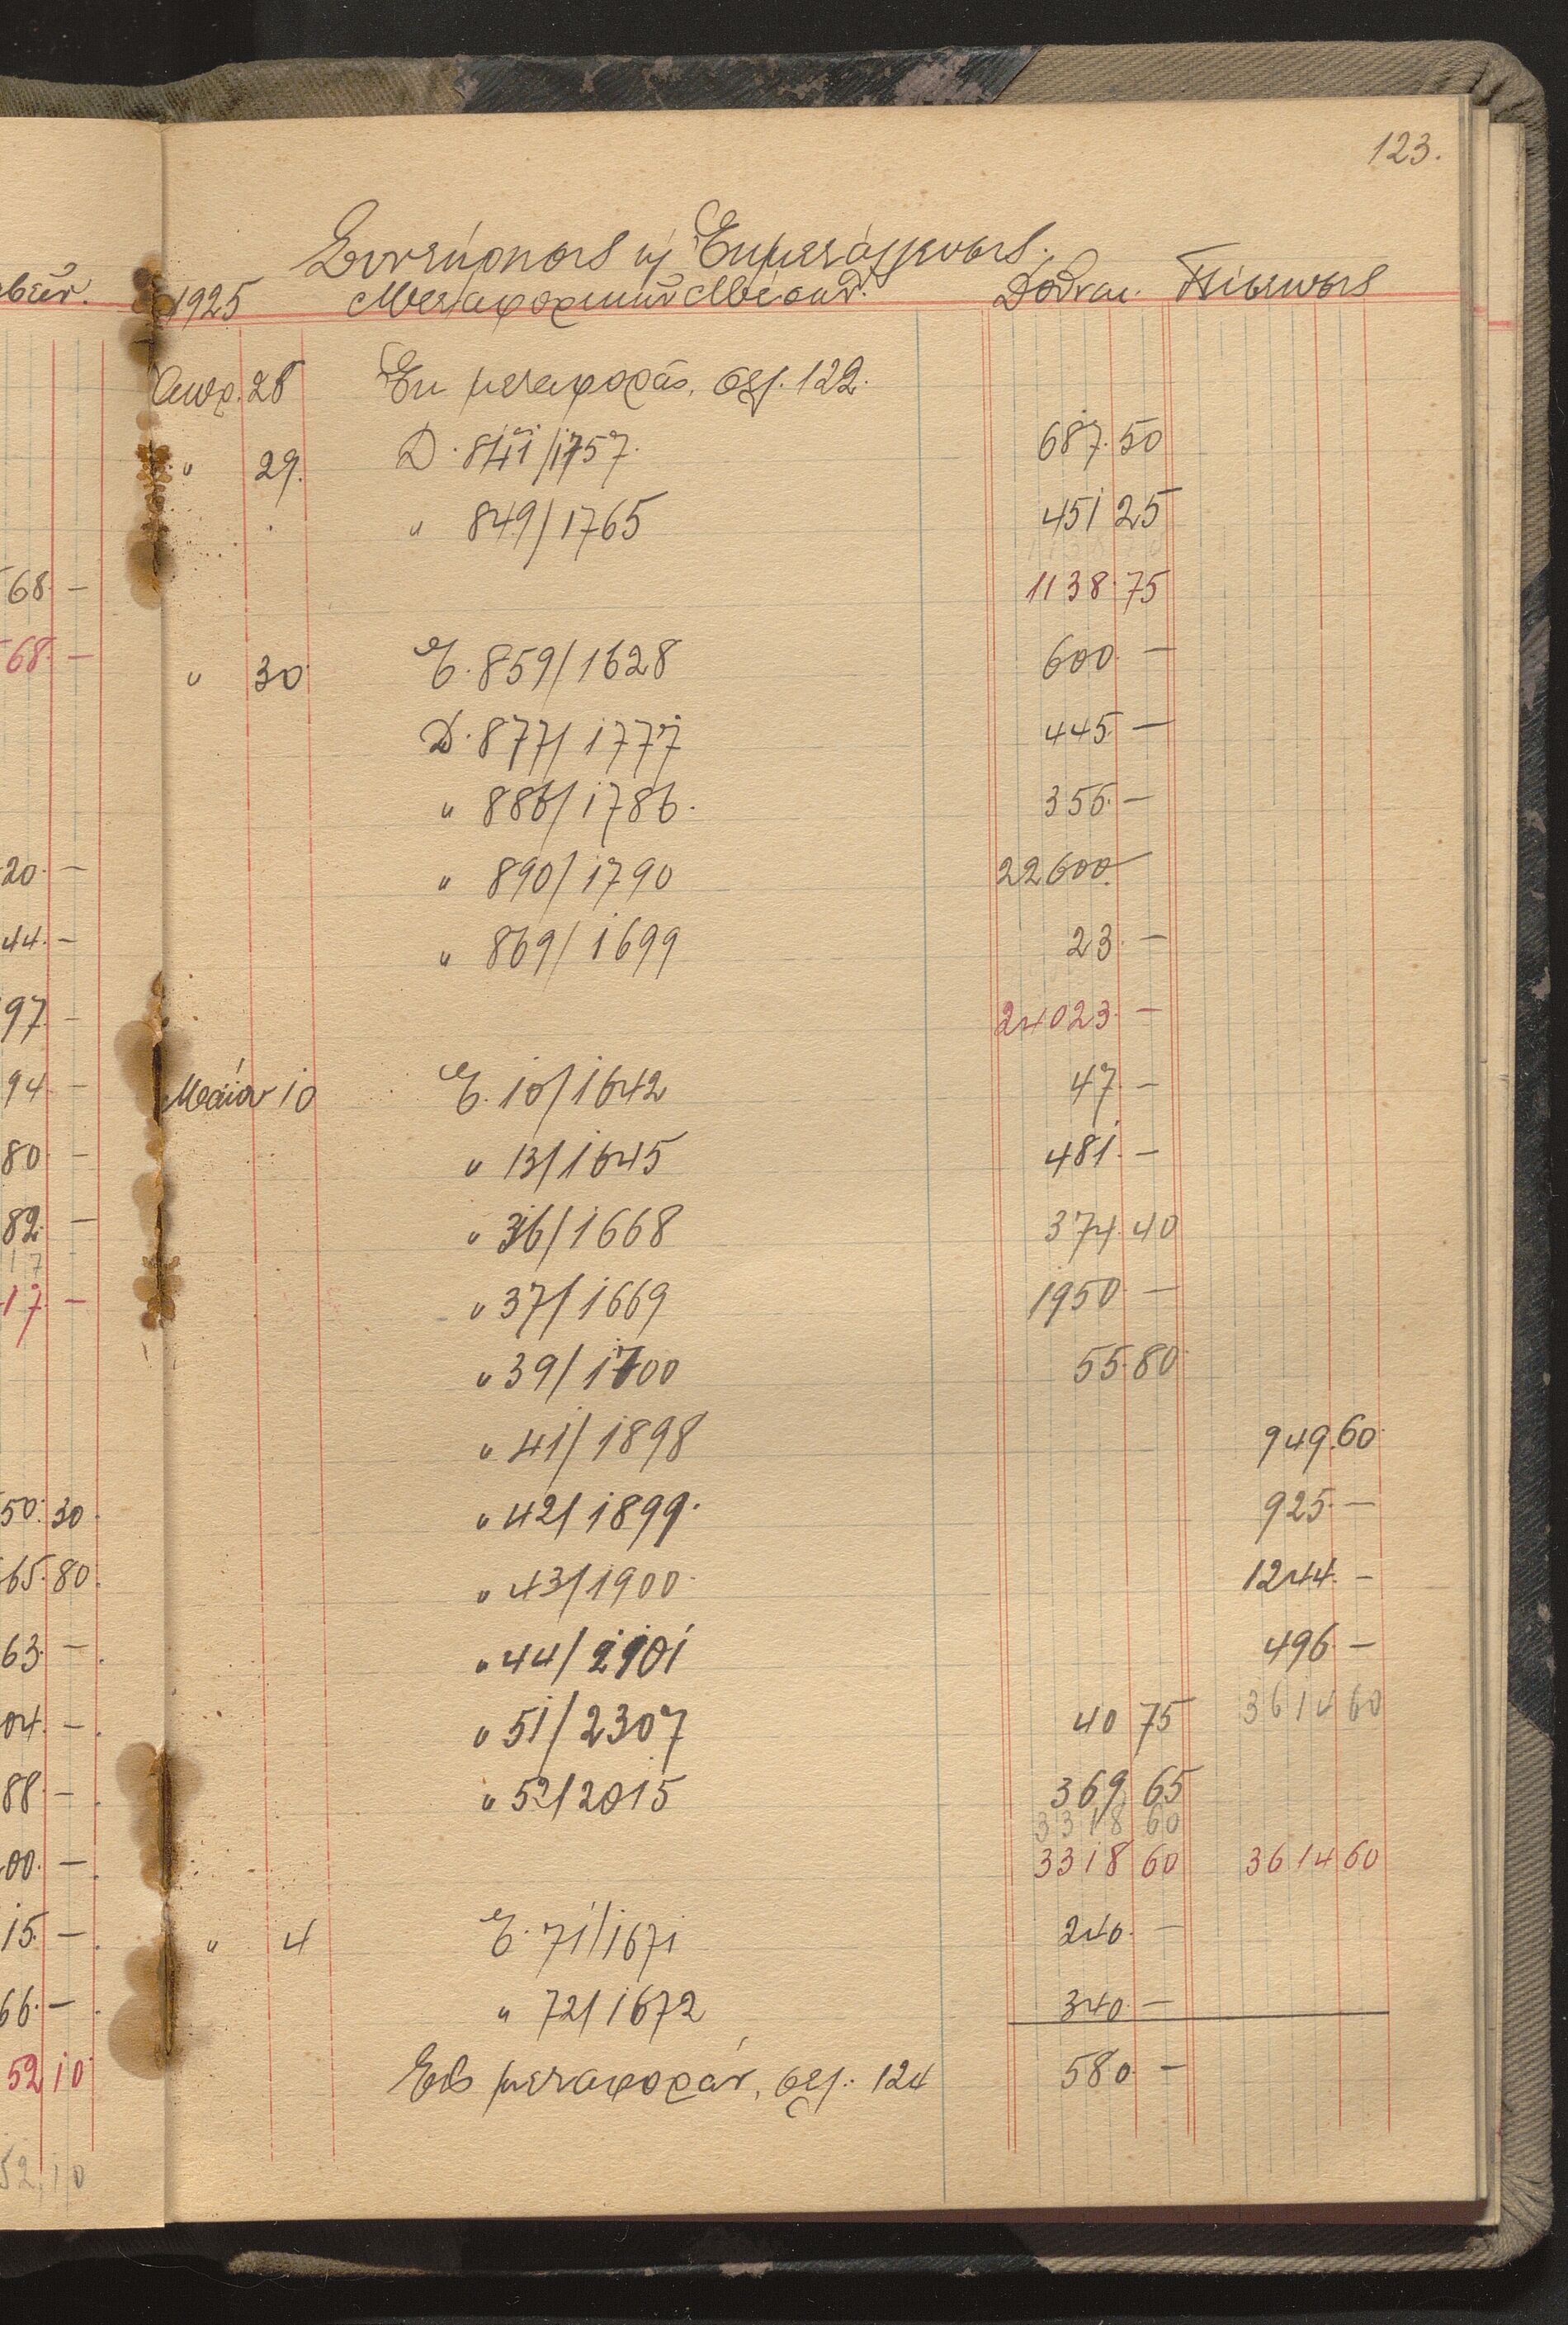 123.
Συντήρησις ἢ Ἐκμετάλλευσις
1925 Μεταφορικῶν Μέσων. Δοῦναι. Πίστωσις
Ἀπρ. 28 Ἐκ μεταφορᾶς, σελ. 122.
" 29. Δ. 841/1757. 687.50
" 849/1765 451 25
1138.75
" 30 Ε. 859/1628 600 —
Δ. 877/1777 445 —
" 886/1786. 355. —
" 890/1790 22600. —
" 869/1699 23. —
24023. —
Μαΐου 10 Ε. 10/1642 47. —
" 13/1645 481. —
" 36/1668 374. 40
" 37/1669 1950. —
" 39/1700 55.80
" 41/1898 949.60
" 42/1899. 925. —
" 43/1900. 1244. —
" 44/2101 496 —
" 51/2307 40 75 3614 60
" 52/2015 369 65
3318 60
3318 60 3614 60
" 4 Ε. 71/1671 240. —
" 72/1672 340. —
Εἰς μεταφοράν, σελ. 124 580 —
68. —
68. —
20. —
44. —
97 —
94 —
80 —
82. —
17
17. —
50. 30
65. 80
63. —
04. —
88. —
00. —
15. —
66. —
52 10
52,10